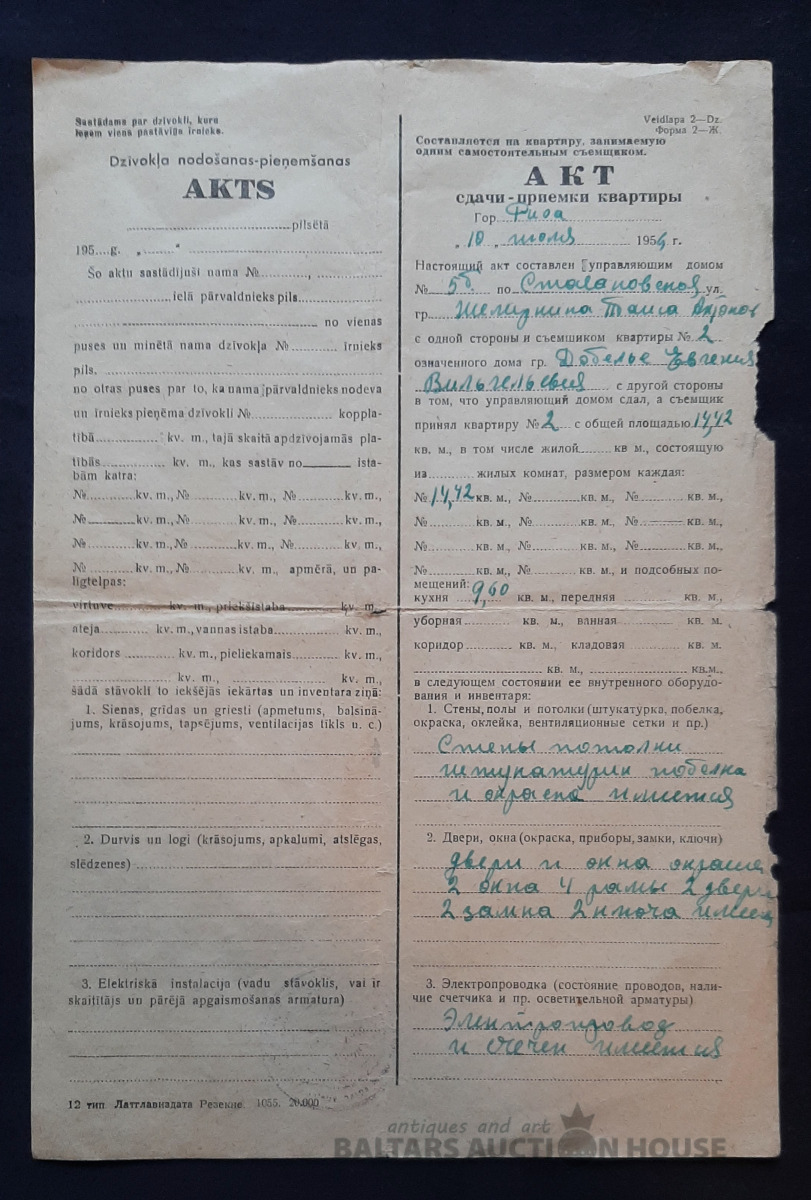 Sastādams par dzīvokli, kuru
ieņem viens pastāvīgs īrnieks.
Dzīvokļa nodošanas-pieņemšanas
AKTS
pilsētā
195....g. „......“
Šo aktu sastādījuši nama №
ielā pārvaldnieks pils.
no vienas
puses un minētā nama dzīvokļa № īrnieks
pils.
no otras puses par to, ka nama pārvaldnieks nodeva
un īrnieks pieņēma dzīvokli № koppla-
tībā kv. m., tajā skaitā apdzīvojamās pla-
tības kv. m., kas sastāv no ista-
bām katra:
№ kv. m., № kv. m., № kv. m.,
№ kv. m., № kv. m., № kv. m.,
№ kv. m., № kv. m., № kv. m.,
№ kv. m., № kv. m., apmērā, un pa-
līgtelpas:
virtuve kv. m., priekšistaba kv. m.
ateja kv. m., vannas istaba kv. m.,
koridors kv. m., pieliekamais kv. m.,
kv. m., kv. m.,
šādā stāvoklī to iekšējās iekārtas un inventara ziņā:
1. Sienas, grīdas un griesti (apmetums, balsinā-
jums, krāsojums, tapsējums, ventilacijas tīkls u. c.)
2. Durvis un logi (krāsojums, apkalumi, atslēgas,
slēdzenes)
3. Elektriskā instalacija (vadu stāvoklis, vai ir
skaitītājs un pārējā apgaismošanas armatura)
12 тип. Латглавиздата Резекне. 1055. 20.000
Veidlapa 2—Dz.
Форма 2—Ж.
Составляется на квартиру, занимаемую
одним самостоятельным съемщиком.
АКТ
сдачи-приемки квартиры
Гор. Рига
„ 10 „ июля 1954 г.
Настоящий акт составлен управляющим домом
№ 5б. по Стахановской ул.
гр. Таиса
с одной стороны и съемщиком квартиры № 2
означенного дома гр. Добелье Евгения
Вильгельевия с другой стороны
в том, что управляющий домом сдал, а съемщик
принял квартиру № 2 с общей площадью 14,42
кв. м., в том числе жилой кв м., состоящую
из жилых комнат, размером каждая:
№ 14,42 кв. м., № кв. м., № кв. м.,
№ кв. м., № кв. м., № кв. м.,
№ кв. м., № кв. м., № кв. м.,
№ кв. м., № кв. м., и подсобных по-
мещений:
кухня 9,60 кв. м., передняя кв. м.,
уборная кв. м., ванная кв. м.
коридор кв. м., кладовая кв. м.
кв. м., кв.м.,
в следующем состоянии ее внутренного оборудо-
вания и инвентаря:
1. Стены, полы и потолки (штукатурка, побелка,
окраска, оклейка, вентиляционные сетки и пр.)
Стены потолки
штукатурки побелка
и окраска имеется
2. Двери, окна (окраска, приборы, замки, ключи)
двери и окна окраше
2 окна 4 рамы 2 двери
2 замка 2 ключа имеец
3. Электропроводка (состояние проводов, нали-
чие счетчика и пр. осветительной арматуры)
Электропровод
и счечек имеется
antiques and art
BALTARS AUCTION HOUSE